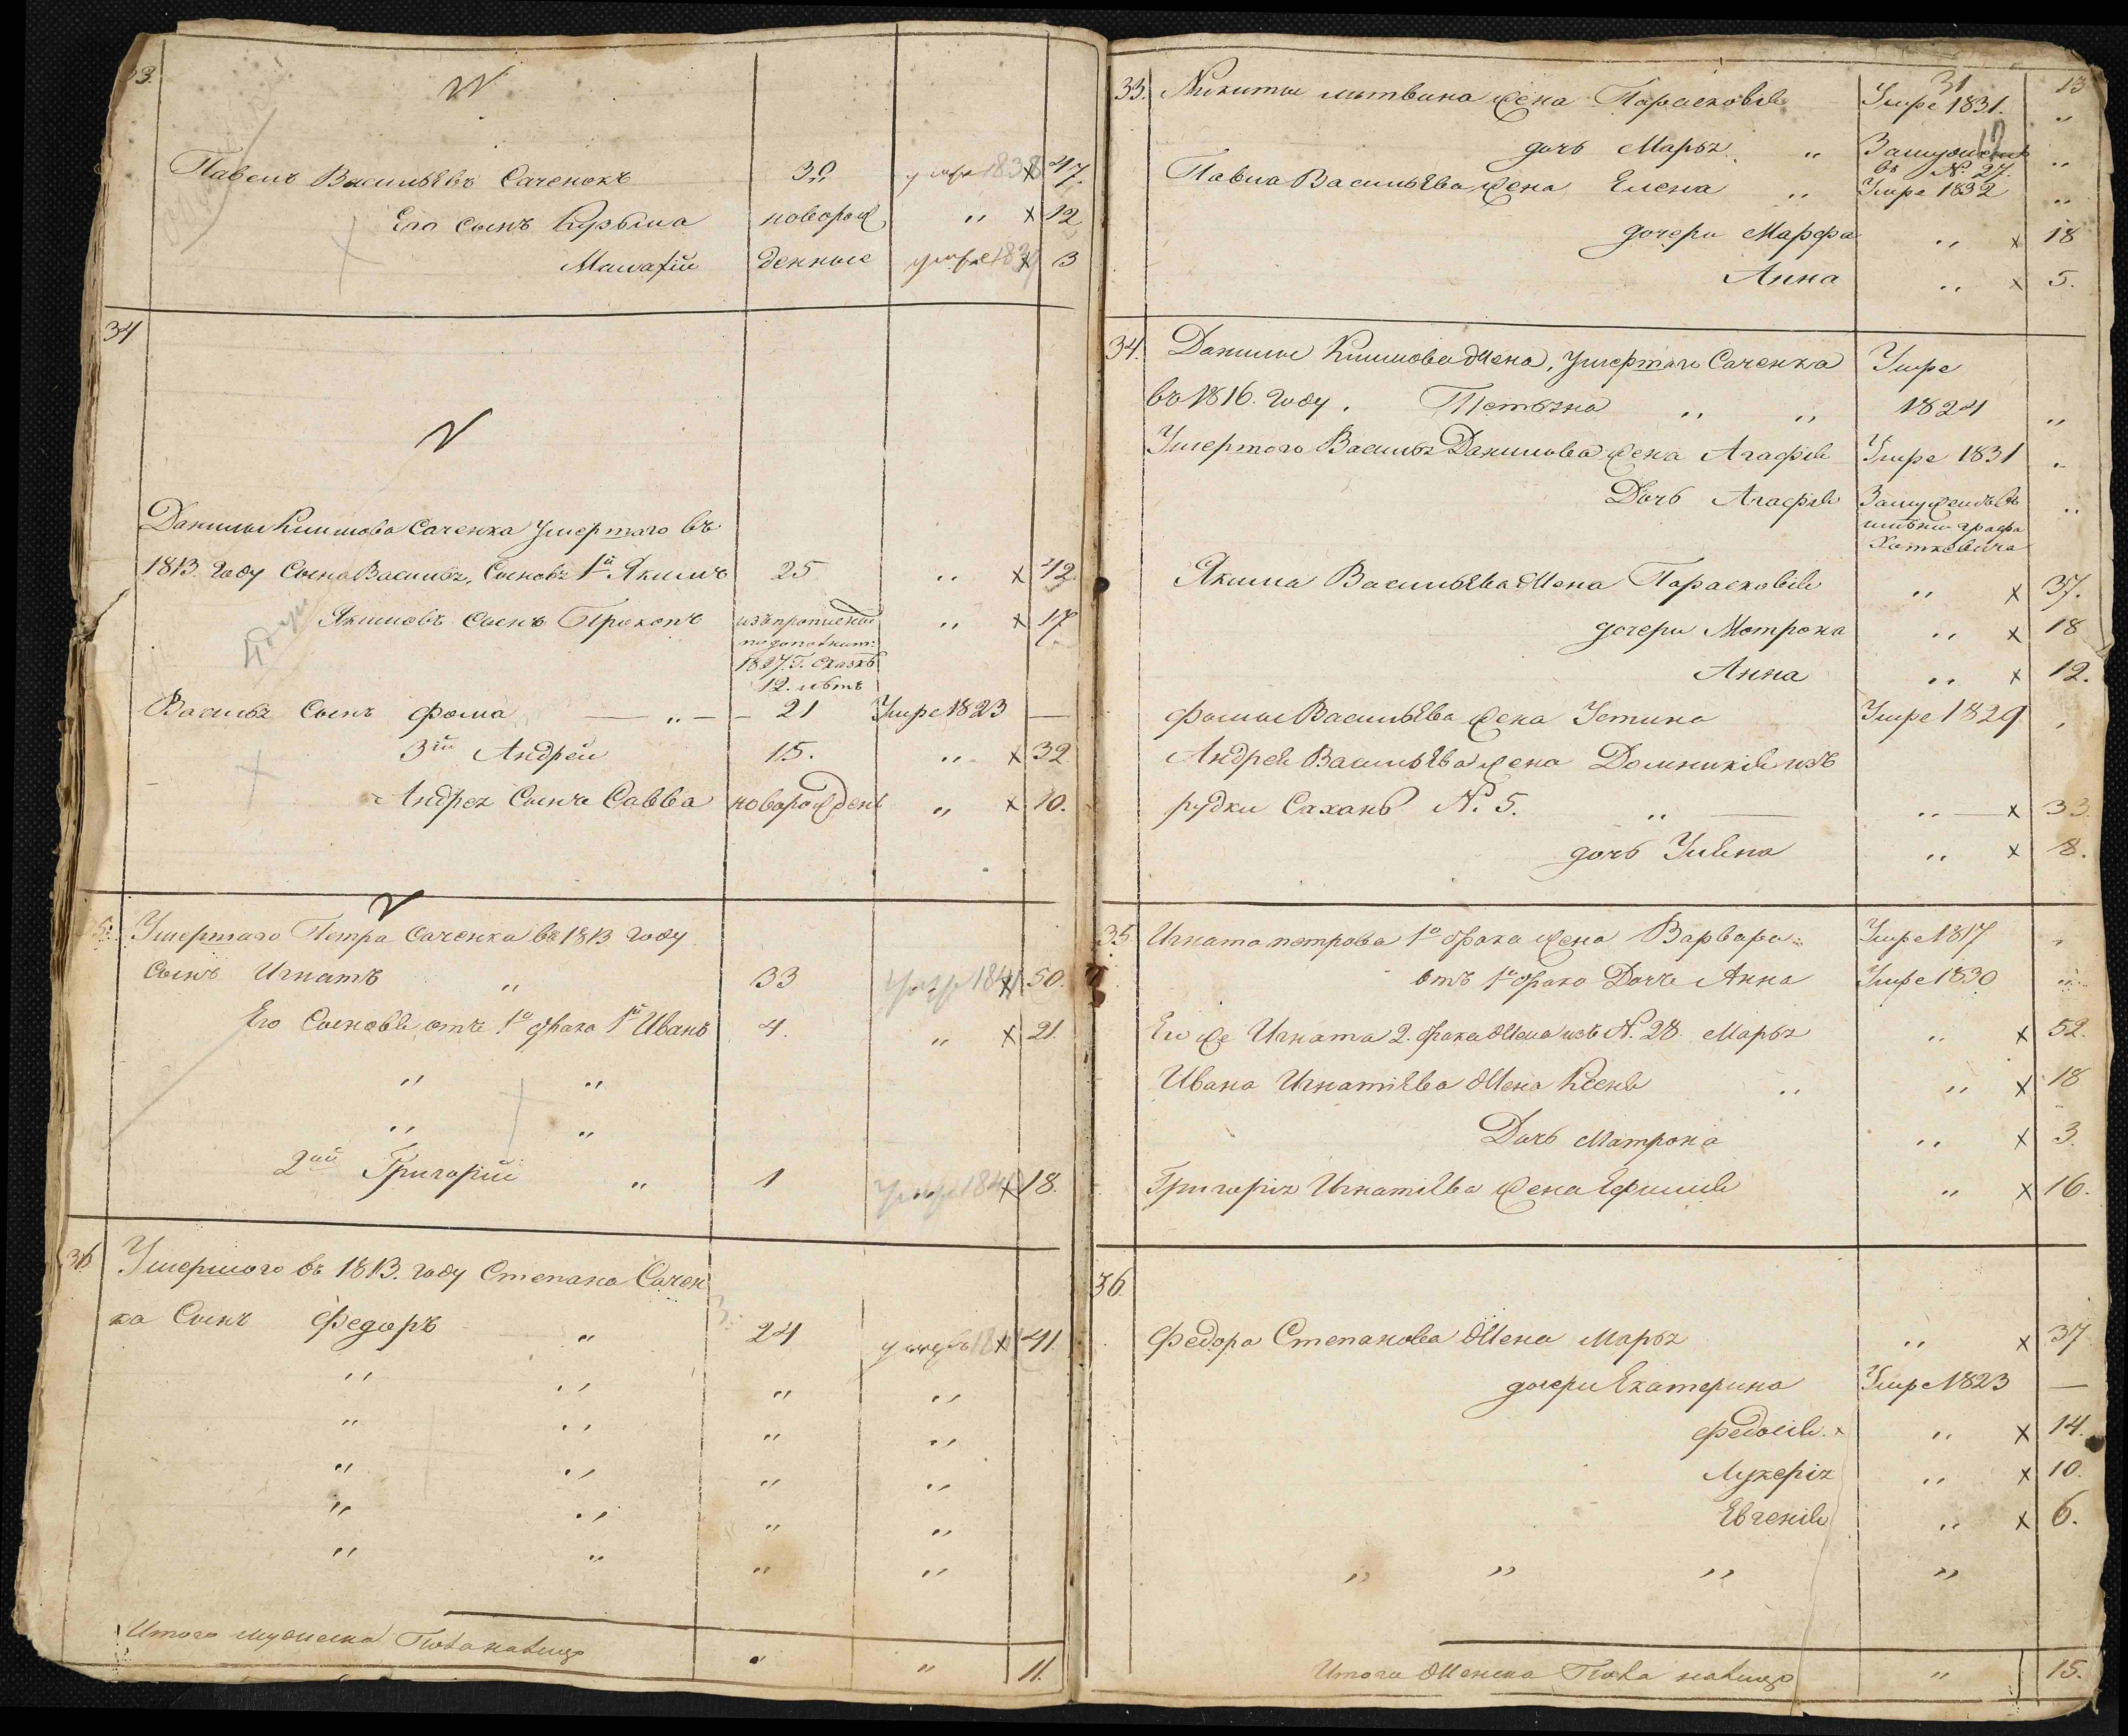 33.
Павелъ Васильевъ Саченокъ 30 умре 1838 x 47.
Его сынъ Кузьма новорож „ x 12
Малафій денные умре 183 x 3
34
Данилы Климова Саченка умершаго въ
1813. году Сына Василья, Сыновья 1й Якимъ 25 „ x 42
Якимовъ Сынъ Прокопъ изъ прописныхъ „ x 17
1827. г. сказкѣ
12. лѣтъ
Василья Сынъ Фома — „ — 21 Умре 1823 —
3ій Андрей 15. „ x 32
Андрея Сынъ Савва новорожденъ „ x 10.
Умершаго Петра Саченка въ 1813 году
сынъ Игнатъ „ 33 умре 184 x 50.
Его Сыновья отъ 1го брака 1й Иванъ 4. „ x 21.
„ „
„ „
2ий Григорій „ 1 умре 184 x 18.
36 Умершого въ 1813. году Степана Сачен
ка Сынъ Федоръ „ 24 умре 18 x 41.
„ „ „ „
„ „ „ „
„ „ „ „
„ „ „ „
„ „ „ „
Итого мужеска Пола налицо „ „ 11.
31 13
33. Никиты литвина жена Парасковья Умре 1831. „
12
дочь Марья „ Замужемъ „
въ №. 27.
Павла Васильева жена Елена „ Умре 1832 „
дочери Марфа „ x 18
Анна „ x 5.
34. Данилы Климова жена, Умершаго Саченка Умре
въ 1816. году. Тетьяна „ „ 1824 „
Умершого Василья Данилова жена Агафья Умре 1831 „
Дочь Агафья Замужемъ въ „
имѣнии графа
Хоткевича
Якима Васильева жена Парасковья „ x 37.
дочери Мотрона „ x 18
Анна „ x 12.
Фомы Васильева жена Устина Умре 1829 „
Андрея Васильева жена Домникія изъ
рудки Сахань №. 5. „ — „ — x 33.
дочь Ульяна „ x 8.
35. Игната петрова 1го брака жена Варвара „ Умре 1817 „
отъ 1го брака Дочь Анна Умре 1830 „
Его же Игната 2. брака жена изъ №. 28. Марья „ x 52.
Ивана Игнатьева жена Ксенья „ „ x 18
Дочь Матрона „ x 3.
Григорія Игнатьева жена Ефимія „ x 16.
36.
Федора Степанова жена Марья „ x 37
дочери Екатерина Умре 1823 —
Федосья x „ x 14.
Лукерія „ x 10.
Евгенія „ x 6.
„ „ „ „
Итого женска Пола налицо „ 15.